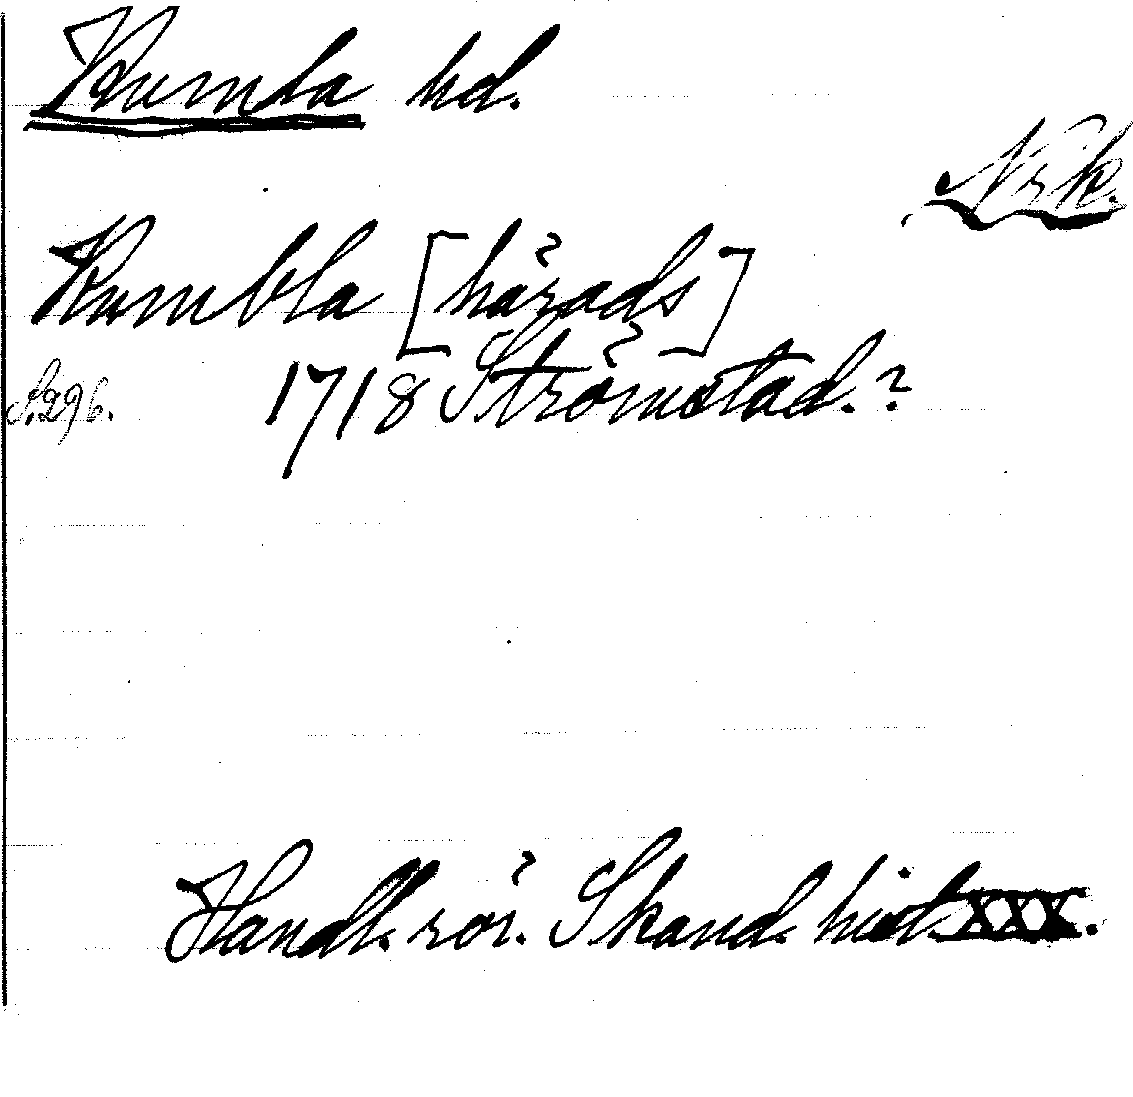 Kumla hd.
Nrk.
Kumbla [härads]
S. 296. 1718 Strömstad.?
Handl. rör. Skand. hist. XXX.